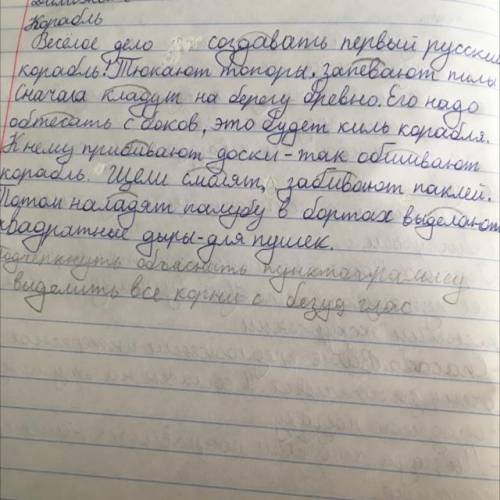 Корабль
Весёлое дело создавать первый русский
корабль! Тюкают топоры. Запевают пилы
Сначала кладут на берегу бревно. Его надо
обтесать с боков, это будет киль корабля.
К нему прибивают доски - так обшивают
корабль. Щели смолят, забивают паклей.
Потом наладят палубу в бортах выделают
квадратные дыры - для пушек.
Подчеркнуть объяснить пунктограммы
выделить все корни с безуд глас